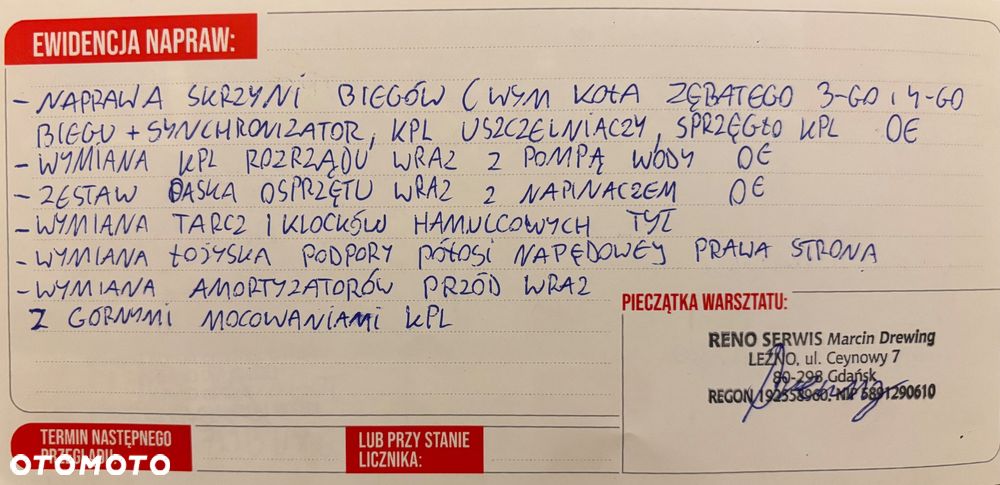 EWIDENCJA NAPRAW:
- NAPRAWA SKRZYNI BIEGÓW ( WYM KOŁA ZĘBATEGO 3-GO i 4-GO
BIEGU + SYNCHRONIZATOR, KPL USZCZELNIACZY, SPRZĘGŁO KPL OE
- WYMIANA KPL ROZRZĄDU WRAZ Z POMPĄ WODY OE
- ZESTAW PASKA OSPRZĘTU WRAZ Z NAPINACZEM OE
- WYMIANA TARCZ I KLOCKÓW HAMULCOWYCH TYŁ
- WYMIANA ŁOŻYSKA PODPORY PÓŁOSI NAPĘDOWEJ PRAWA STRONA
- WYMIANA AMORTYZATORÓW PRZÓD WRAZ
Z GÓRNYMI MOCOWANIAMI KPL
PIECZĄTKA WARSZTATU:
RENO SERWIS Marcin Drewing
LEŹNO, ul. Ceynowy 7
80-298 Gdańsk
REGON 192558960, NIP 5891290610
TERMIN NASTĘPNEGO
PRZEGLĄDU
LUB PRZY STANIE
LICZNIKA:
OTOMOTO